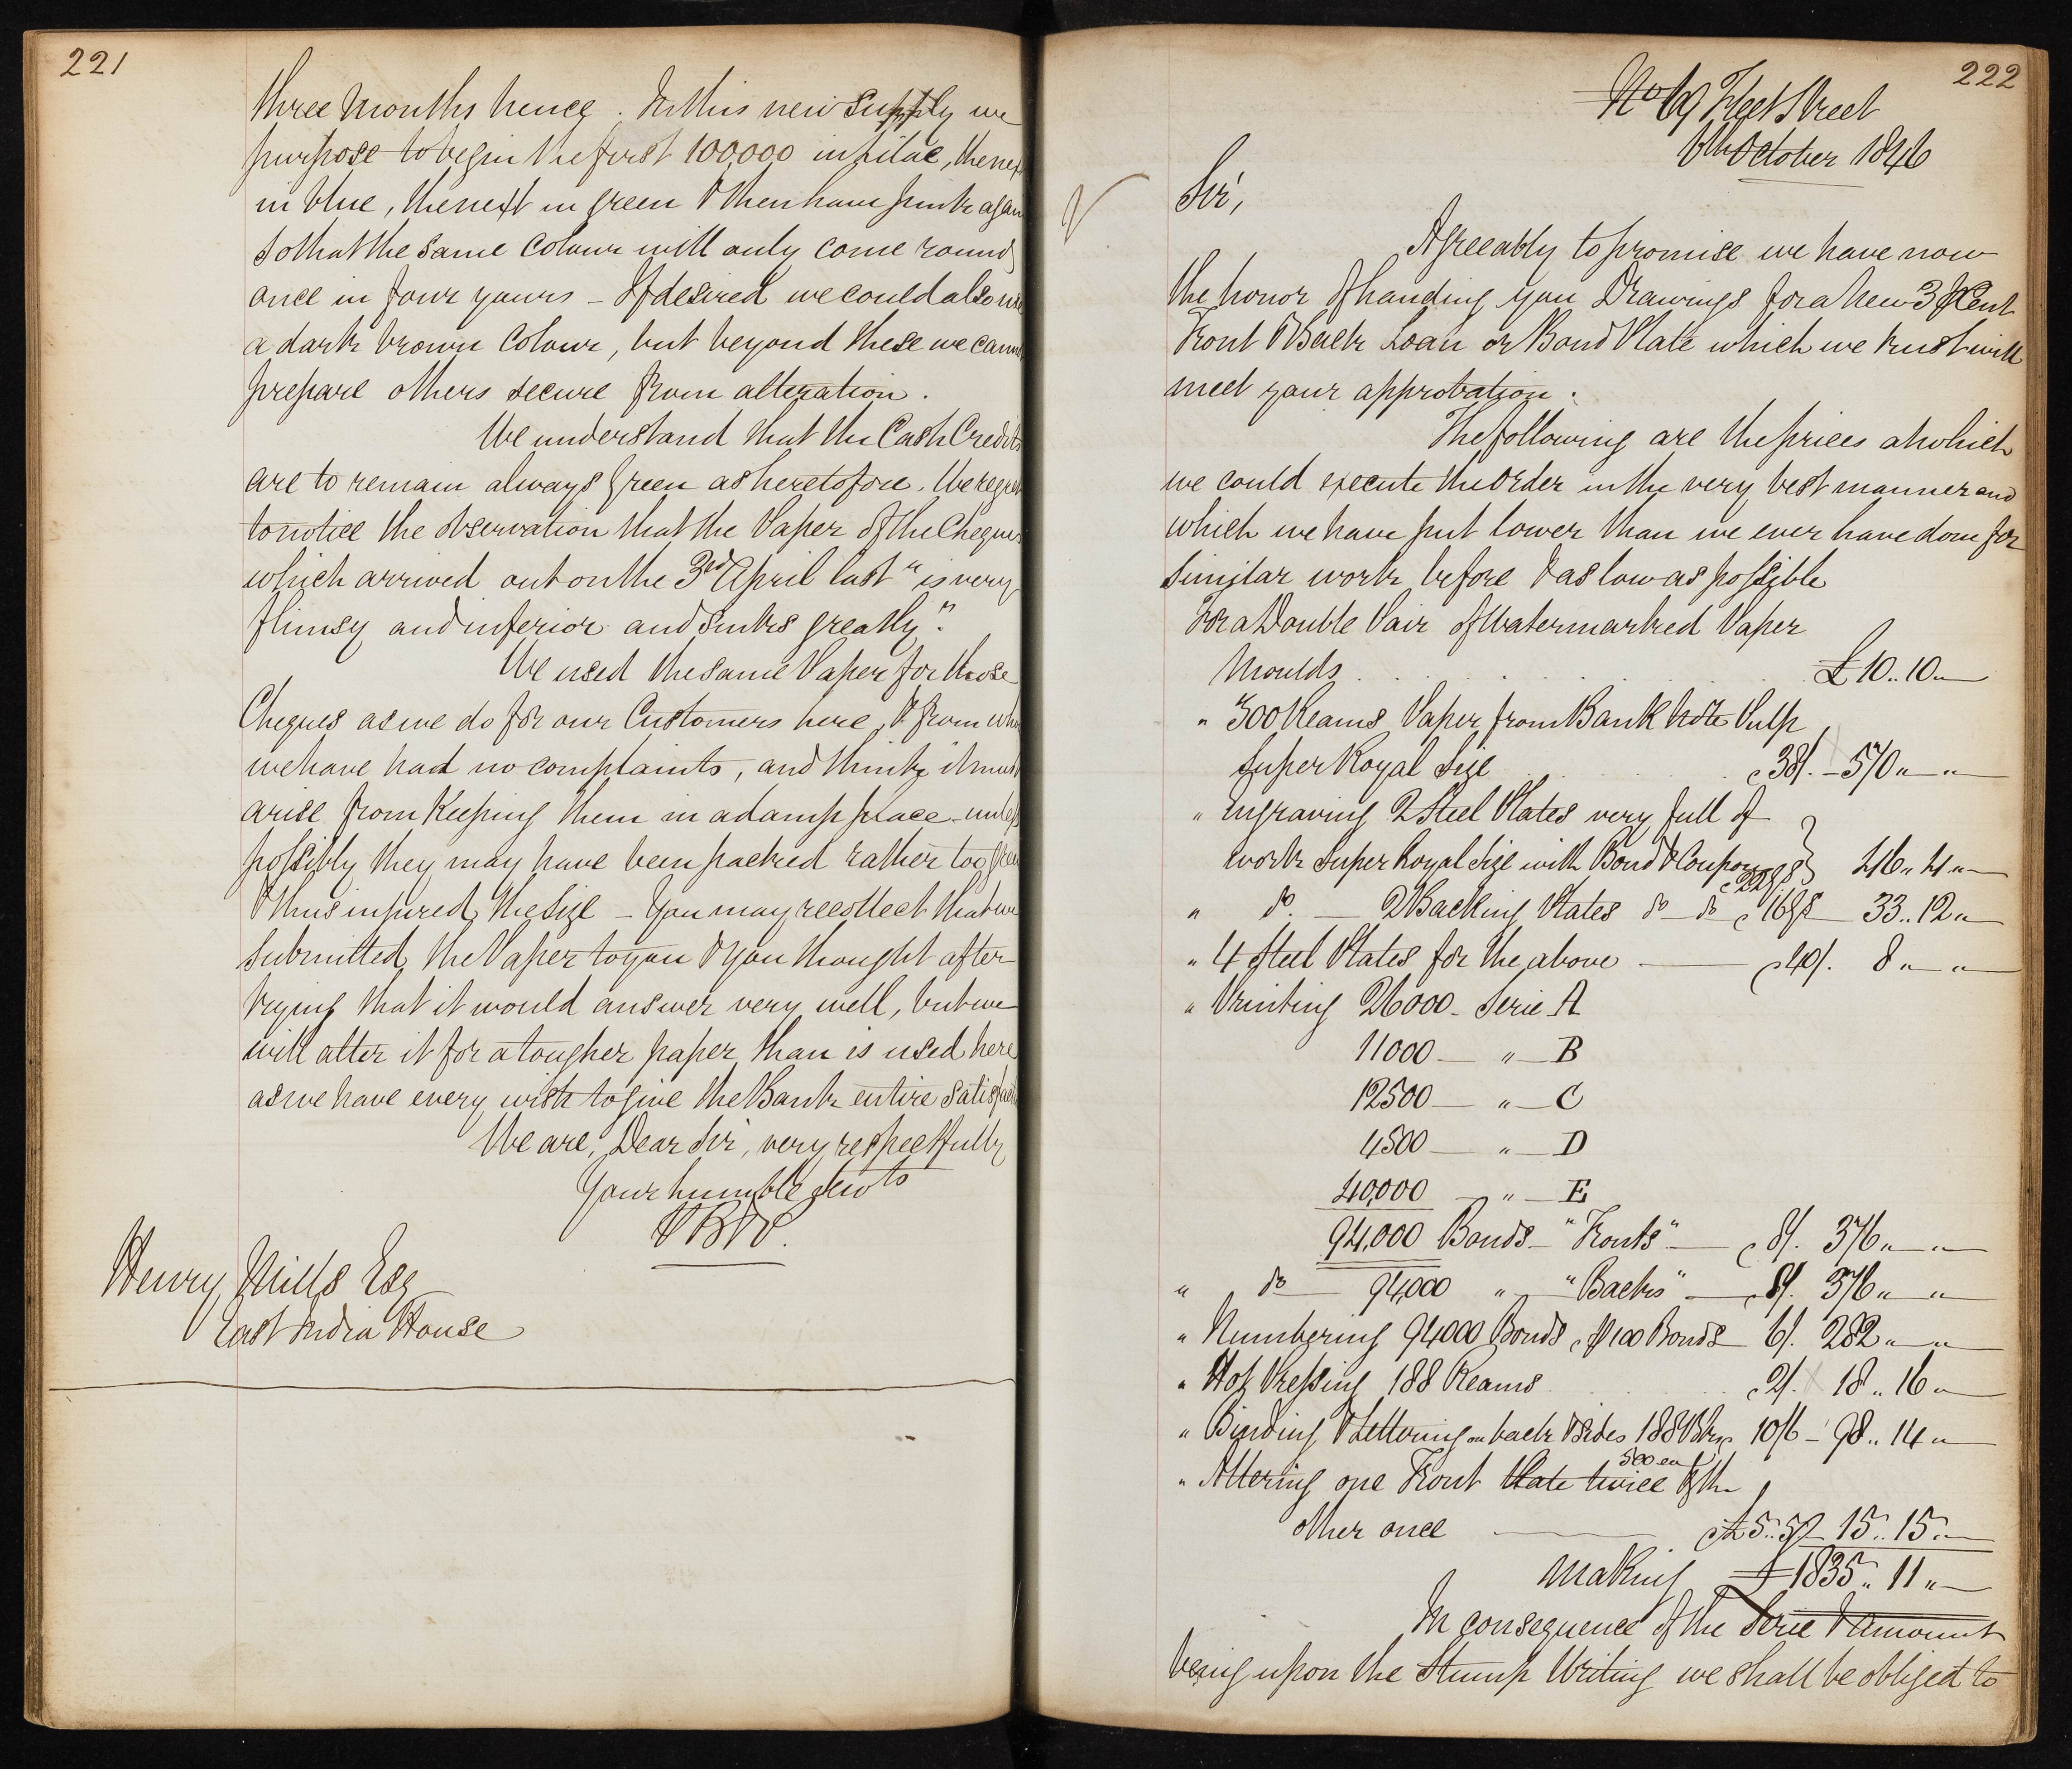 221
three Months hence. In this new supply we
purpose to begin the first 100,000 in lilac, the next
in blue, the next in green & then have pink again
so that the same Colour will only come round
once in four years – If desired we could also use
a dark brown Colour, but beyond these we cannot
prepare others secure from alteration.
We understand that the Cash Credits
are to remain always Green as heretofore. We regret
to notice the observation that the Paper of the Cheques
which arrived out on the 3rd April last "is very
flimsy and inferior and sinks greatly".
We used the same Paper for those
Cheques as we do for our Customers here, & from whom
we have had no complaints, and think it must
arise from Keeping them in a damp place - unless
possibly they may have been packed rather too green
& thus injured the Size – You may recollect that we
submitted the Paper to you & you thought after
trying that it would answer very well, but we
will alter it for a tougher paper than is used here
as we have every wish to give the Bank entire Satisfact
We are, Dear Sir, very respectfully
Your humble Servts
PB&P.
Henry Mills Esq
East India House
222
No 69 Fleet Street
6th October 1846
Sir,
Agreeably to promise we have now
the honor of handing you Drawings for a New 3 P Cent
Front & Back Loan or Bond Plate which we trust will
meet your approbation.
The following are the prices at which
we could execute the Order in the very best manner and
which we have put lower than we ever have done for
similar work before & as low as possible
For a Double Pair of Watermarked Paper
Moulds . . . . £10..10"—
" 300 Reams Paper from Bank Note Pulp
Super Royal Size @ 38/. – 570"—"—
" Engraving 2 Steel Plates very full of
work Super Royal Size with Bond & Coupons @22gs } 46"4"—
" do. — 2 Backing Plates do – do @ 16gs — 33..12"—
" 4 Steel Plates for the above — @40/. 8"—"—
" Printing 26000 – Serie A
11000 — " — B
12500 — " — C
4500 — " — D
40,000 — " — E
94,000 Bonds – "Fronts" — @ 8/. 376"—"—
" do — 94,000 " — "Backs" — @8/. 376"—"—
" Numbering 94000 Bonds @ P 100 Bonds – 6/. 282"—"—
" Hot Pressing 188 Reams @ 2/. 18..16"—
" Binding & Lettering on back & sides 188 Bks 500 ea @ 10/6 – 98..14"—
" Altering one Front Plate twice & the
other once — @ £5..5/. 15..15"—
Making £1835..11"—
In consequence of the Serie & amount
being upon the Stump Writing we shall be obliged to